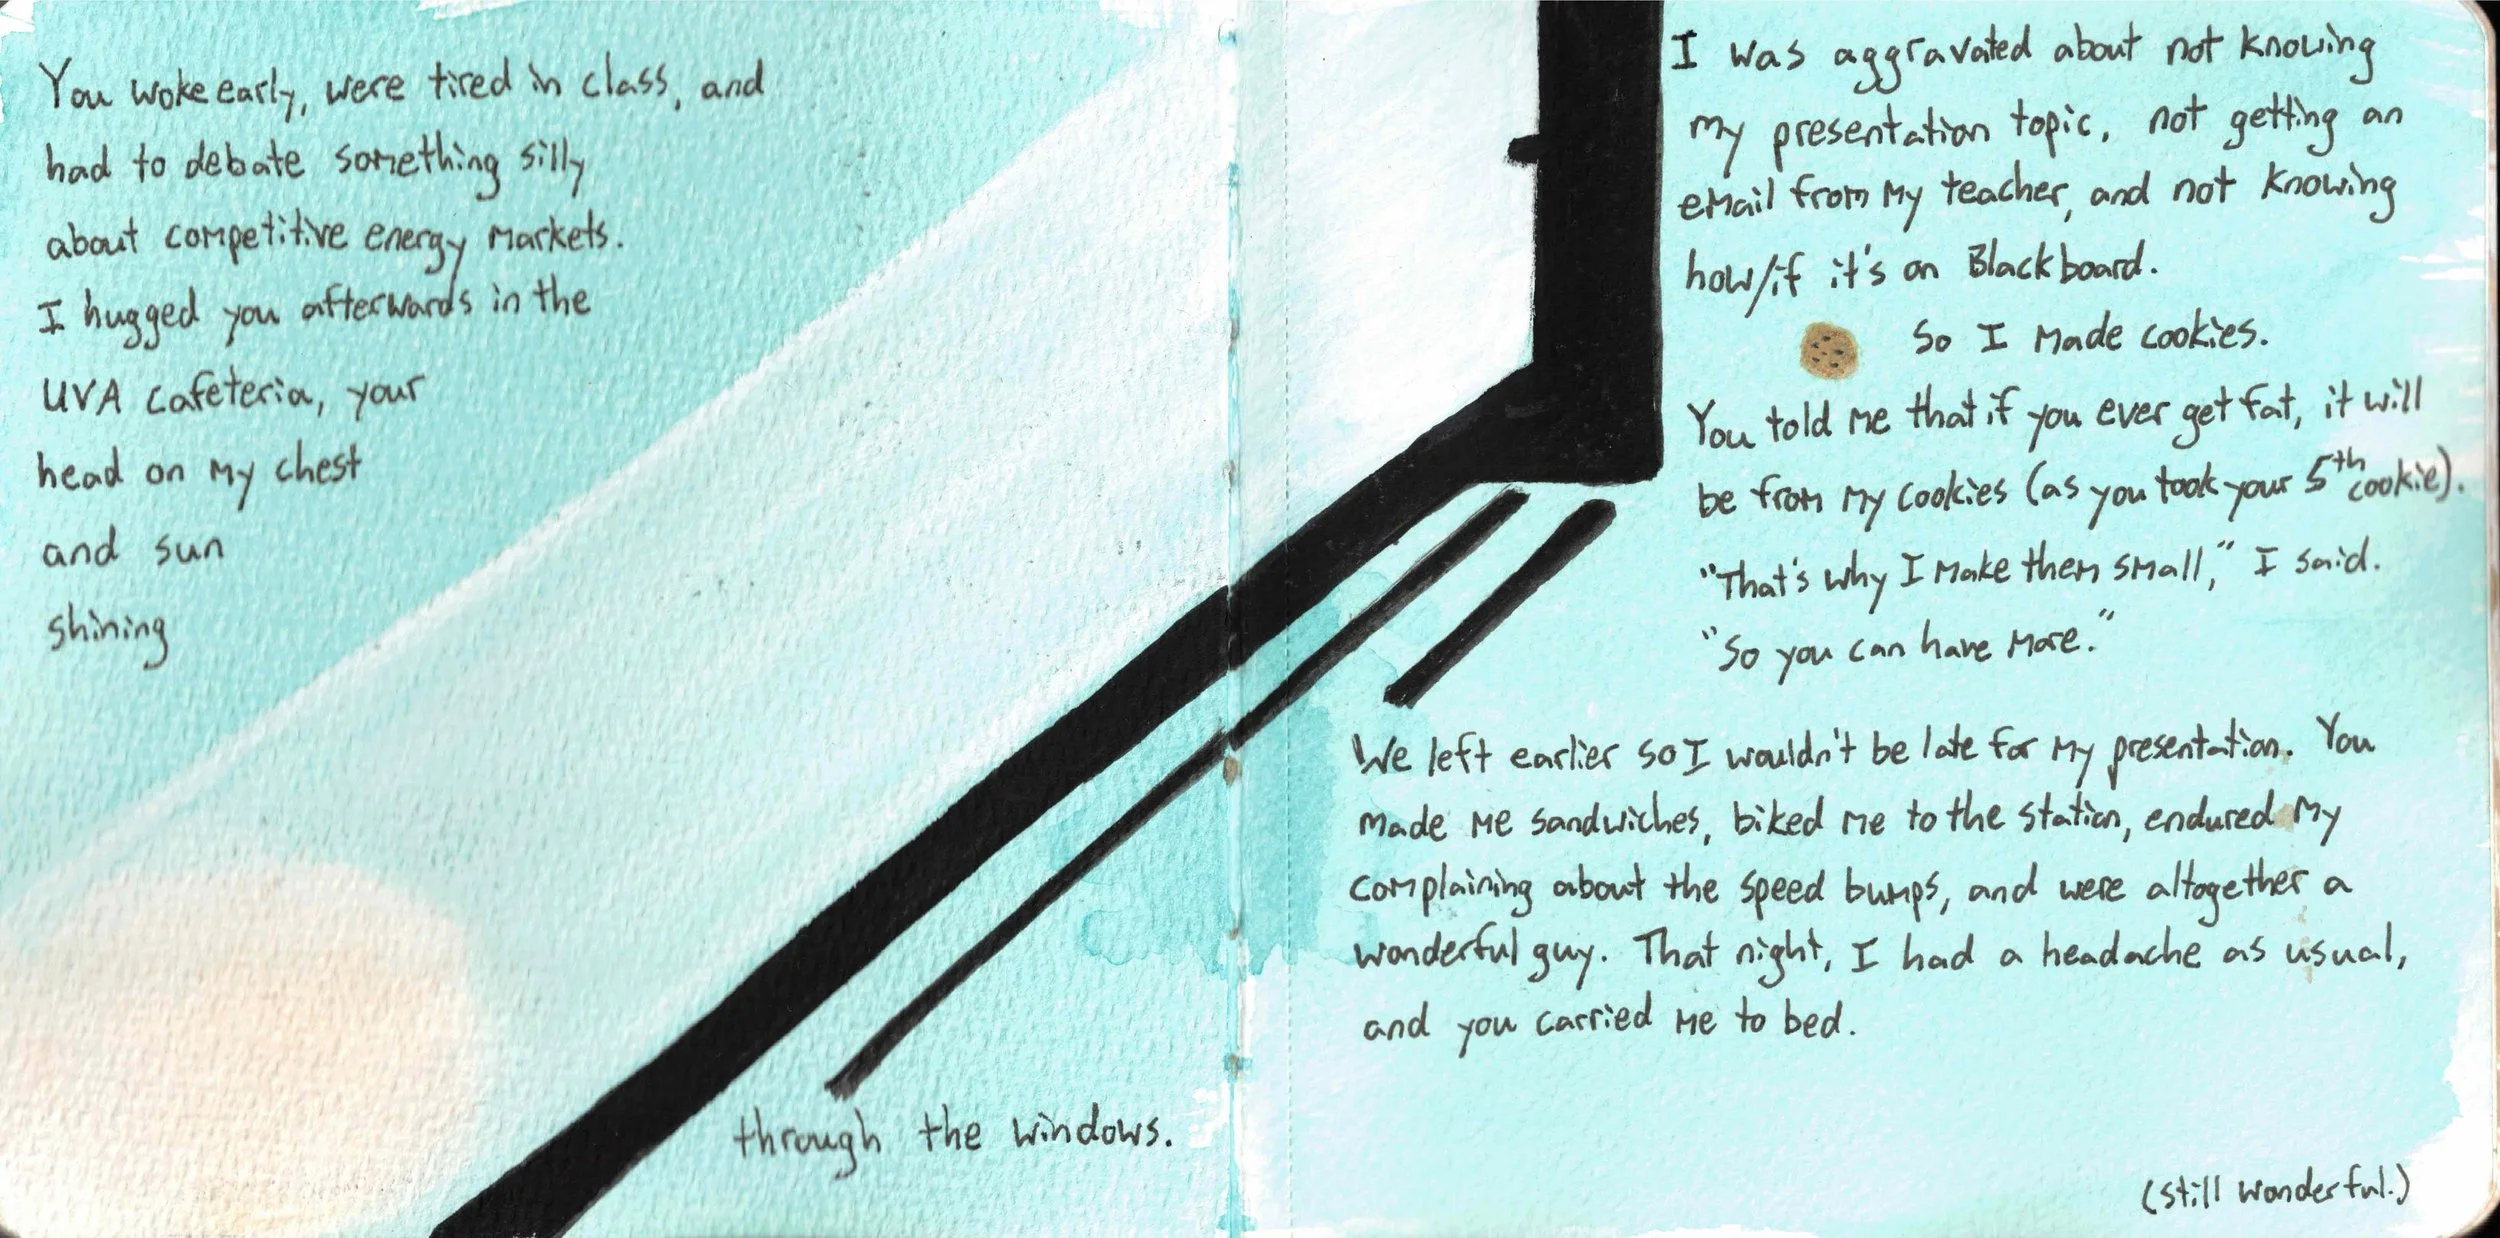 You woke early, were tired in class, and
had to debate something silly
about competitive energy markets.
I hugged you afterwards in the
UVA cafeteria, your
head on my chest
and sun
shining
through the windows.
I was aggravated about not knowing
my presentation topic, not getting an
email from my teacher, and not knowing
how/if it's on Blackboard.
So I made cookies.
You told me that if you ever get fat, it will
be from my cookies (as you took your 5th cookie).
"That's why I make them small," I said.
"So you can have more."
We left earlier so I wouldn't be late for my presentation. You
made me sandwiches, biked me to the station, endured my
complaining about the speed bumps, and were altogether a
wonderful guy. That night, I had a headache as usual,
and you carried me to bed.
(still wonderful.)